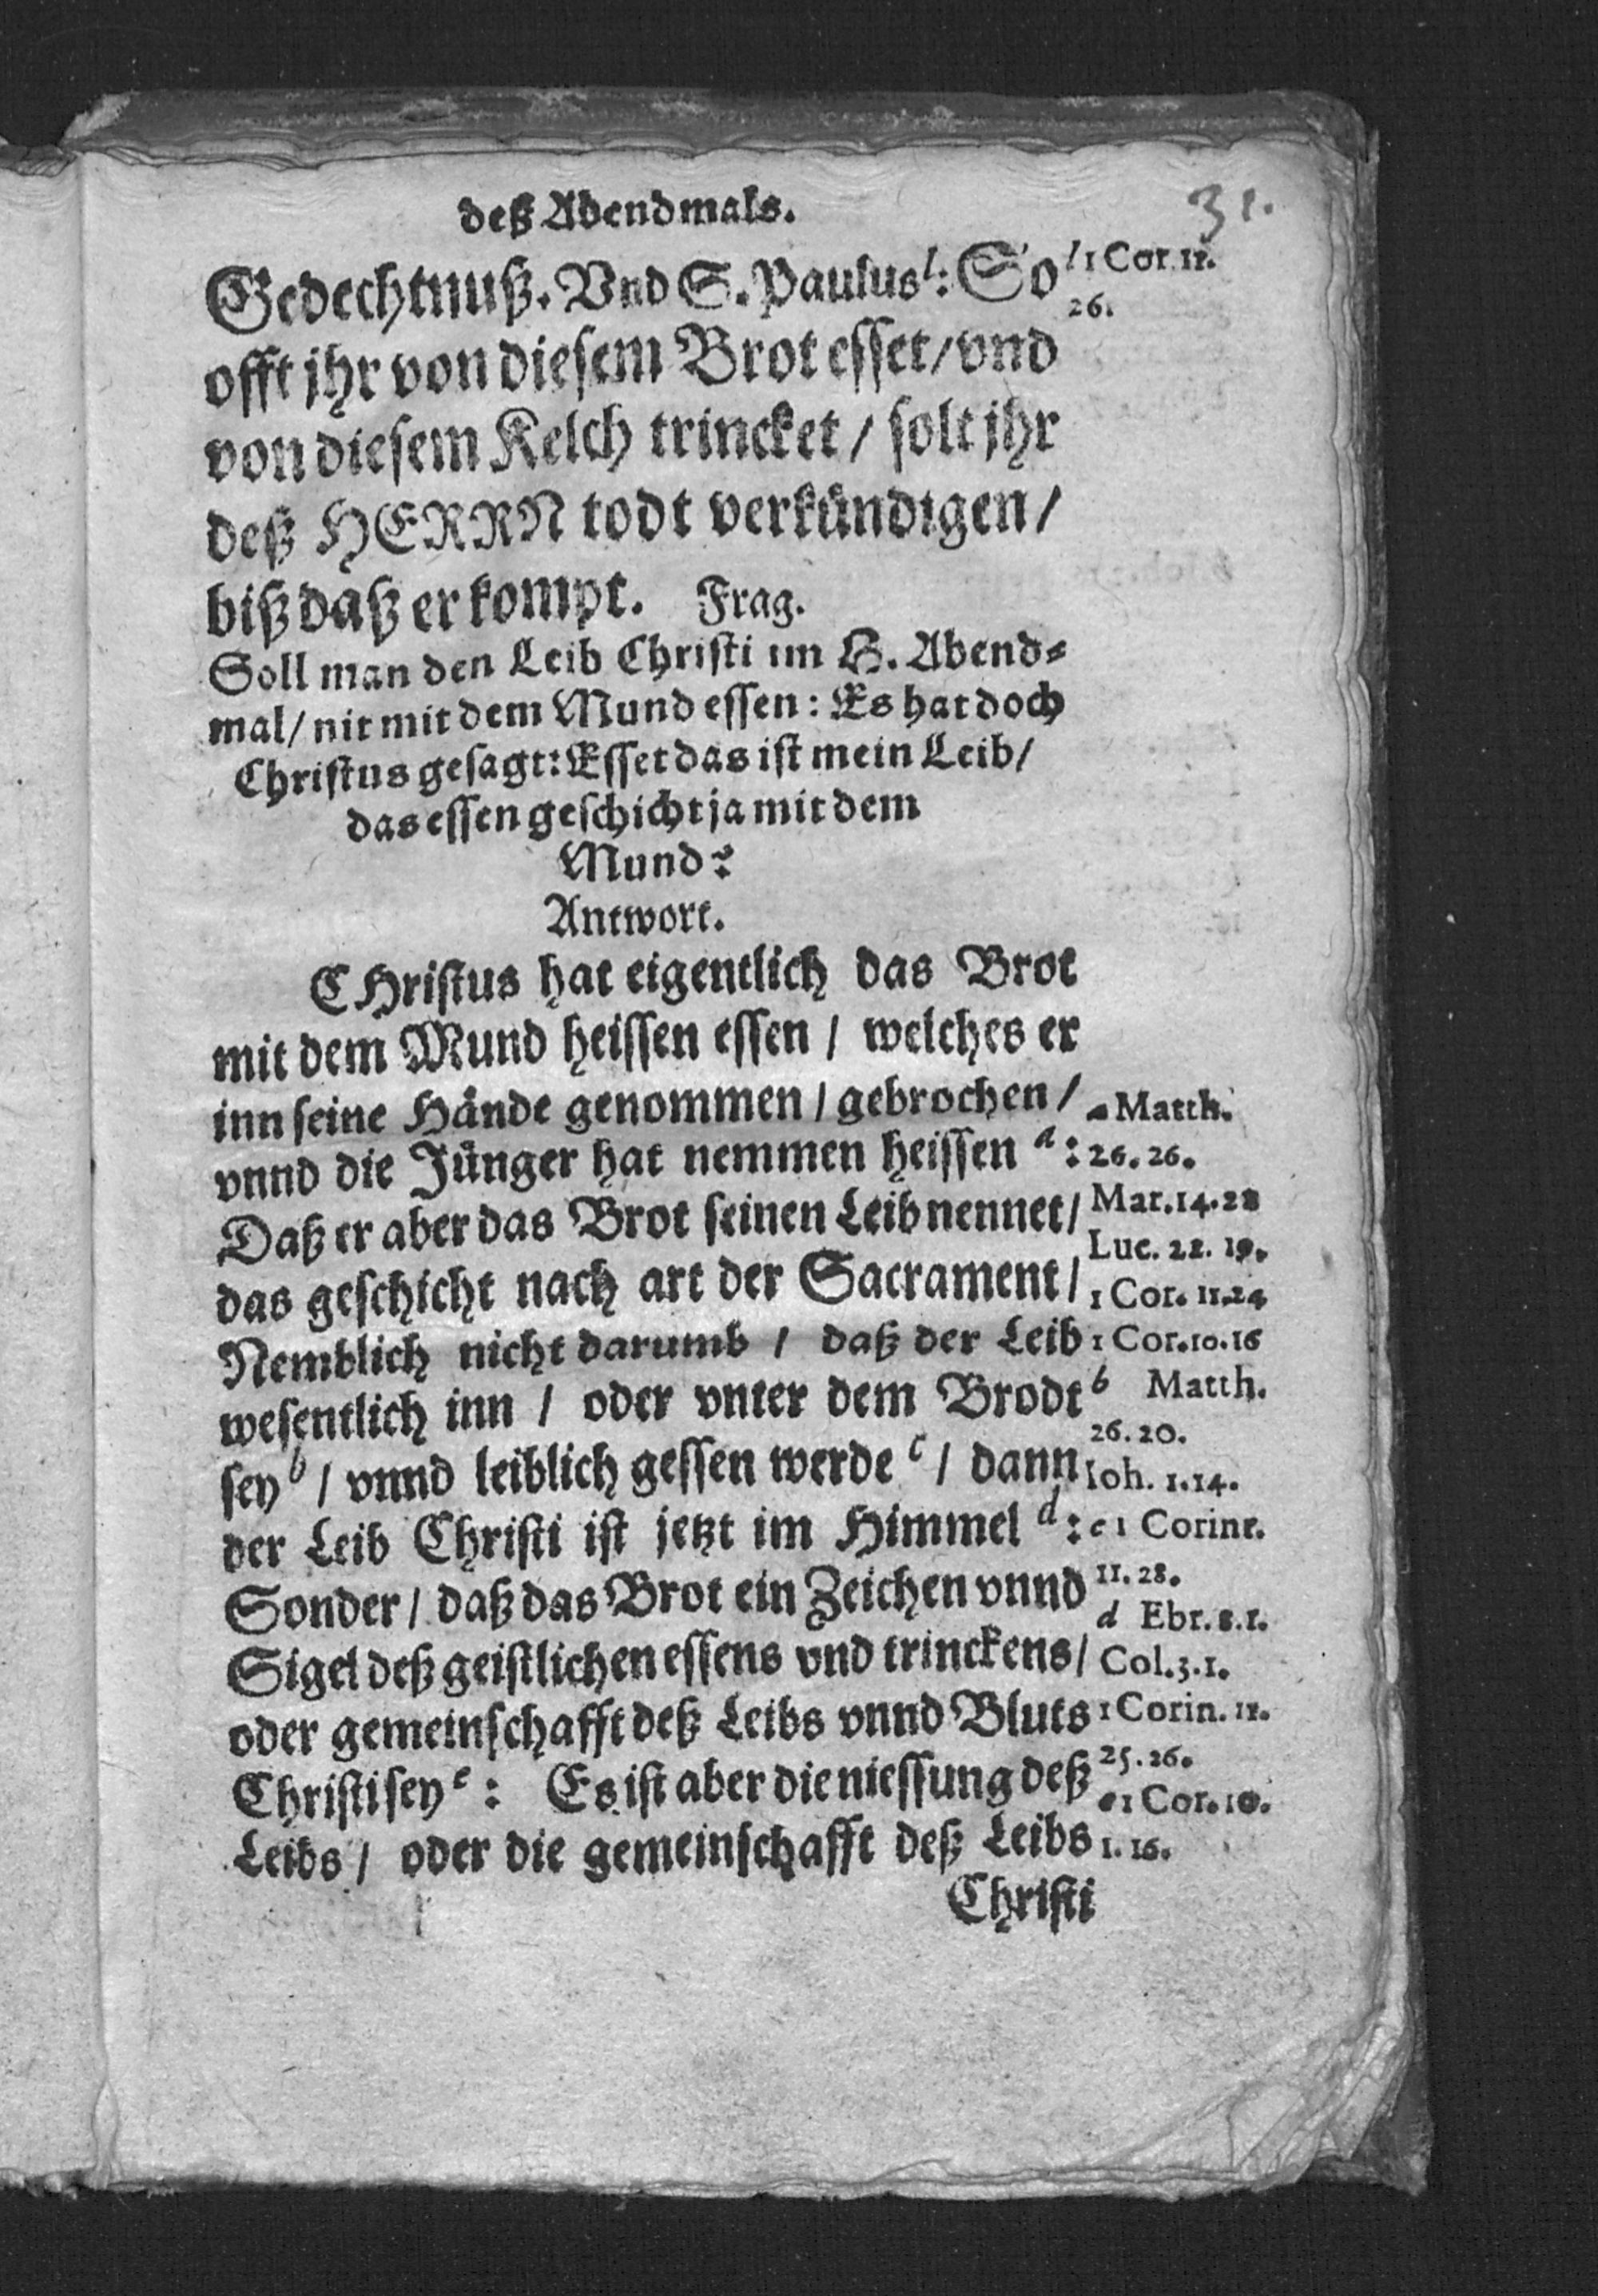 deß Abendmals.
31.
Gedechtnuß. Vnd S. Paulus l: So
offt jhr von diesem Brot esset / vnd
von diesem Kelch trincket / solt jhr
deß HERRN todt verkündigen /
biß daß er kompt. Frag.
Soll man den Leib Christi im H. Abend-
mal / nit mit dem Mund essen: Es hat doch
Christus gesagt: Esset das ist mein Leib /
das essen geschicht ja mit dem
Mund?
Antwort.
CHristus hat eigentlich das Brot
mit dem Mund heissen essen / welches er
inn seine Hände genommen / gebrochen /
vnnd die Jünger hat nemmen heissen a:
Daß er aber das Brot seinen Leib nennet /
das geschicht nach art der Sacrament /
Nemblich nicht darumb / daß der Leib
wesentlich inn / oder vnter dem Brodt
sey b / vnnd leiblich gessen werde c / dann
der Leib Christi ist jetzt im Himmel d:
Sonder / daß das Brot ein Zeichen vnnd
Sigel deß geistlichen essens vnd trinckens /
oder gemeinschafft deß Leibs vnnd Bluts
Christi sey e: Es ist aber die niessung deß
Leibs / oder die gemeinschafft deß Leibs
Christi
l 1 Cor. 11.
26.
a Matth.
26. 26.
Mar. 14. 22
Luc. 22. 19.
1 Cor. 11. 24
1 Cor. 10. 16
b Matth.
26. 20.
Ioh. 1. 14.
c 1 Corint.
11. 28.
d Ebr. 8. 1.
Col. 3. 1.
1 Corin. 11.
25. 26.
e 1 Cor. 10.
1. 16.